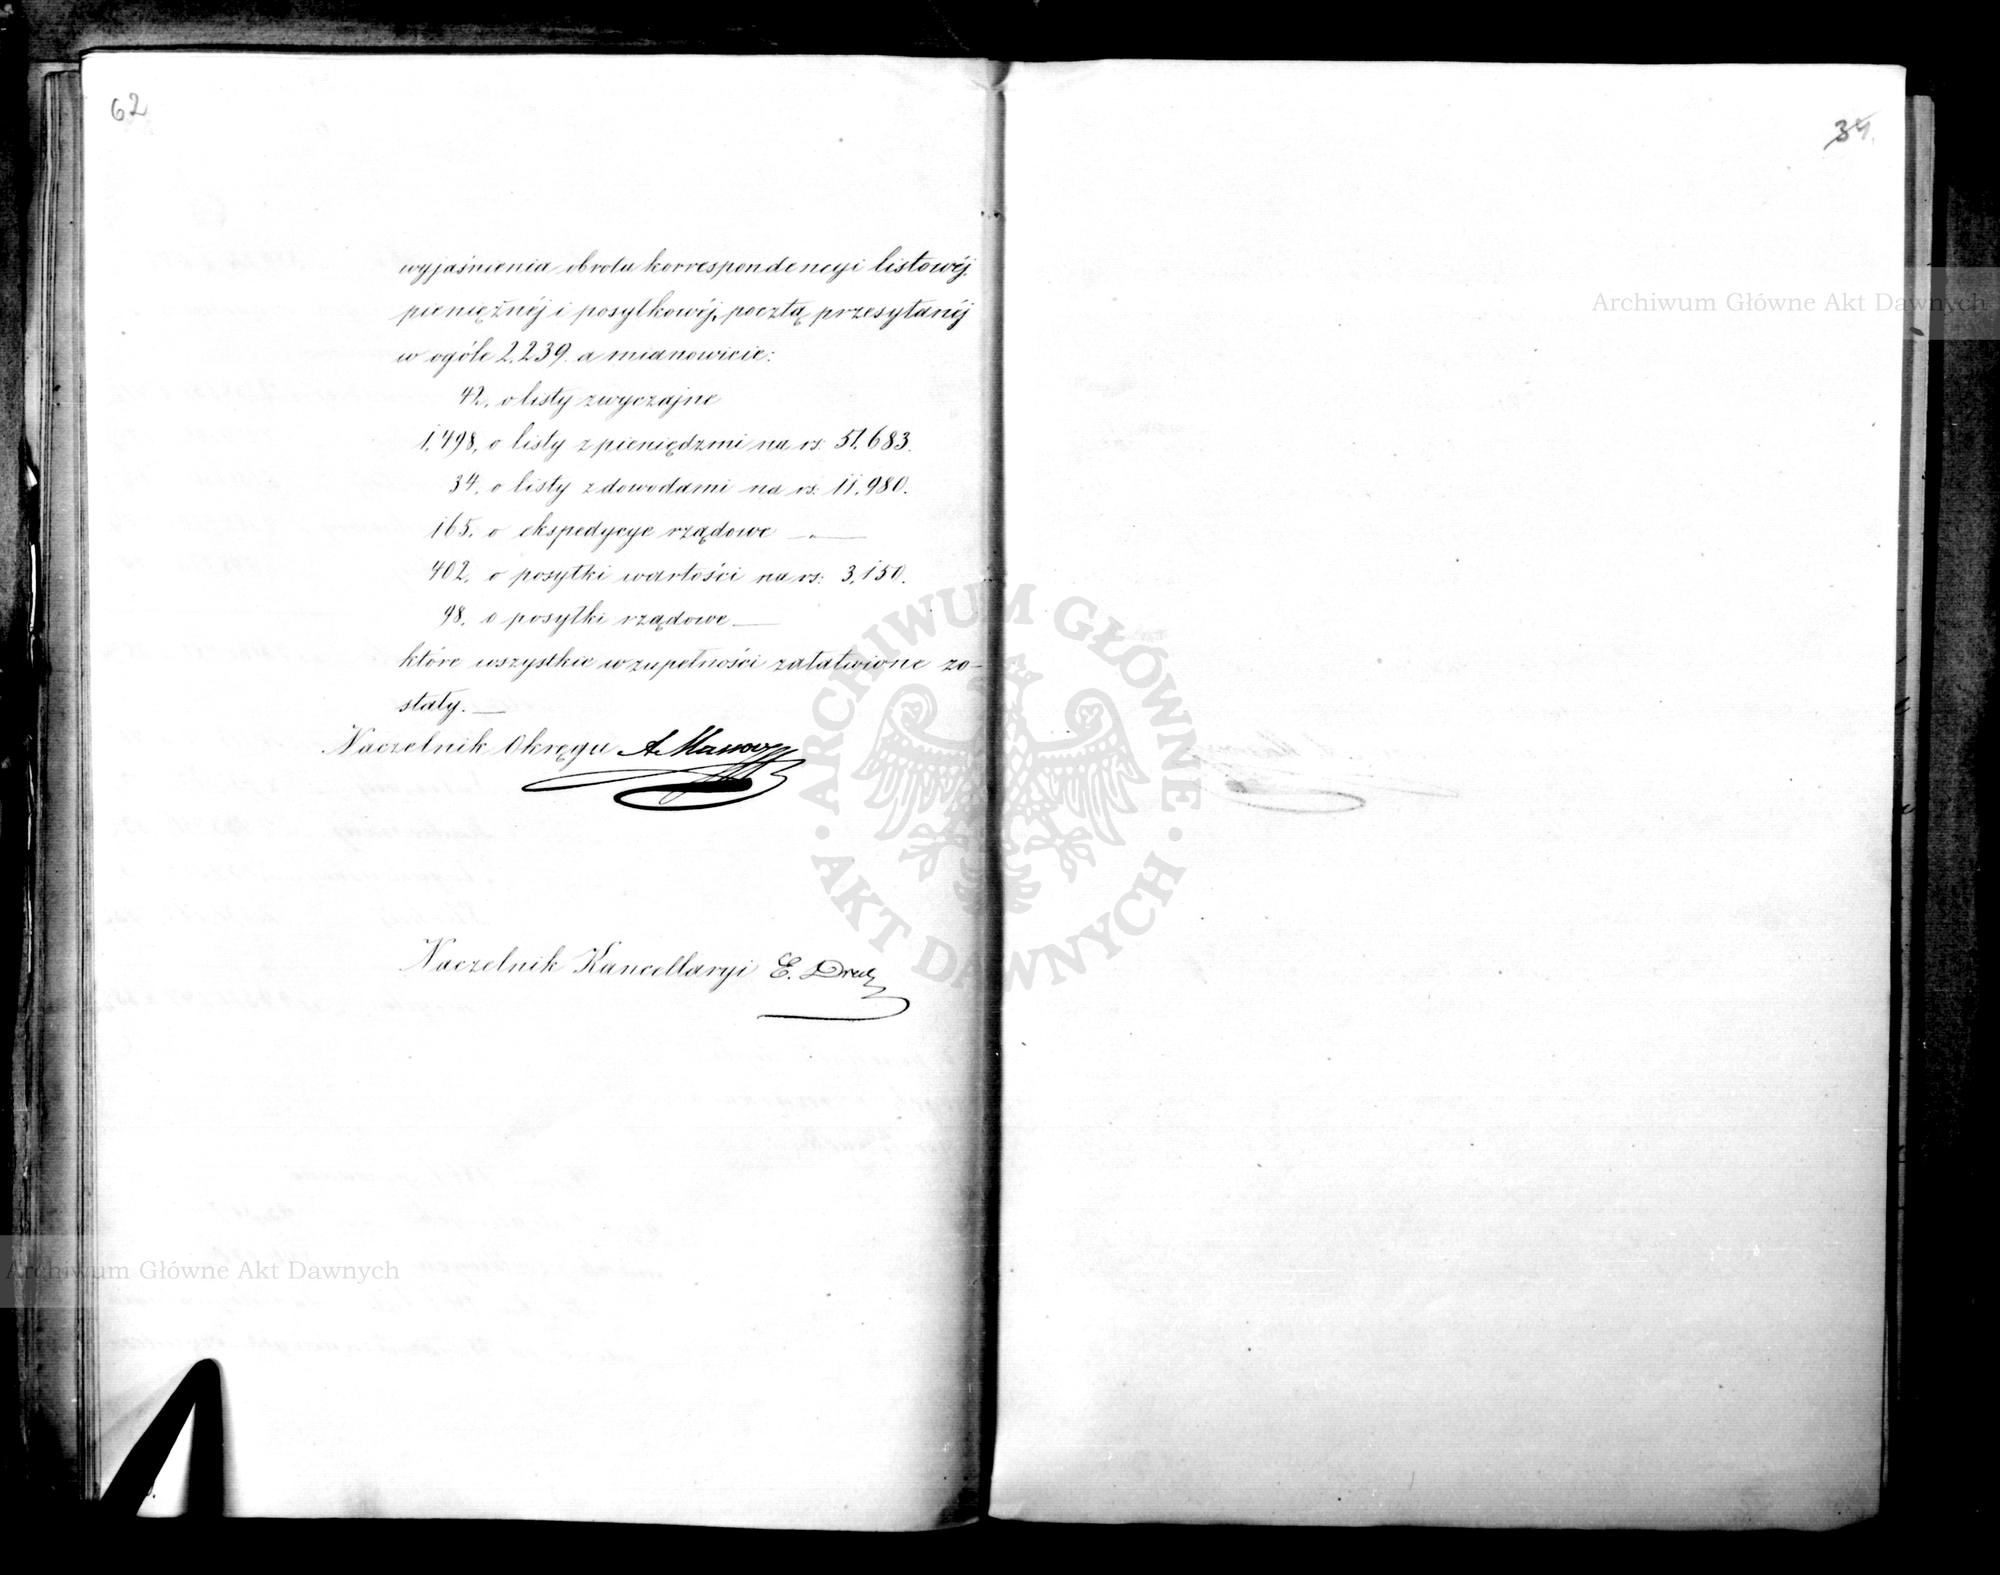 62
wyjaśnienia obrotu korrespondencyi listowéj,
pieniężnéj i posyłkowéj, pocztą przesyłanéj
w ogóle 2,239. a mianowicie:
42, o listy zwyczajne
1,498, o listy z pieniędzmi na rs: 51,683.
34, o listy z dowodami na rs: 11,980.
165, o ekspedycye rządowe —
402, o posyłki wartości na rs: 3,150.
98, o posyłki rządowe —
które wszystkie w zupełności załatwione zo-
stały. —
Naczelnik Okręgu A.
Naczelnik Kancellaryi E.
34.
Archiwum Główne Akt Dawnych
ARCHIWUM GŁÓWNE
AKT DAWNYCH
Archiwum Główne Akt Dawnych